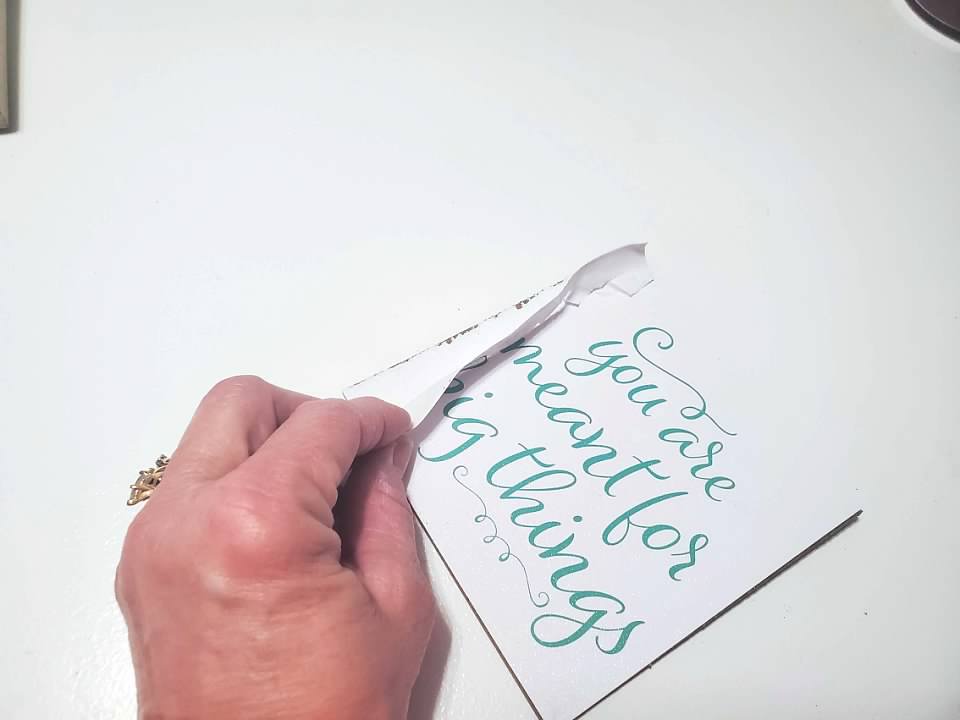 you are
meant for
big things